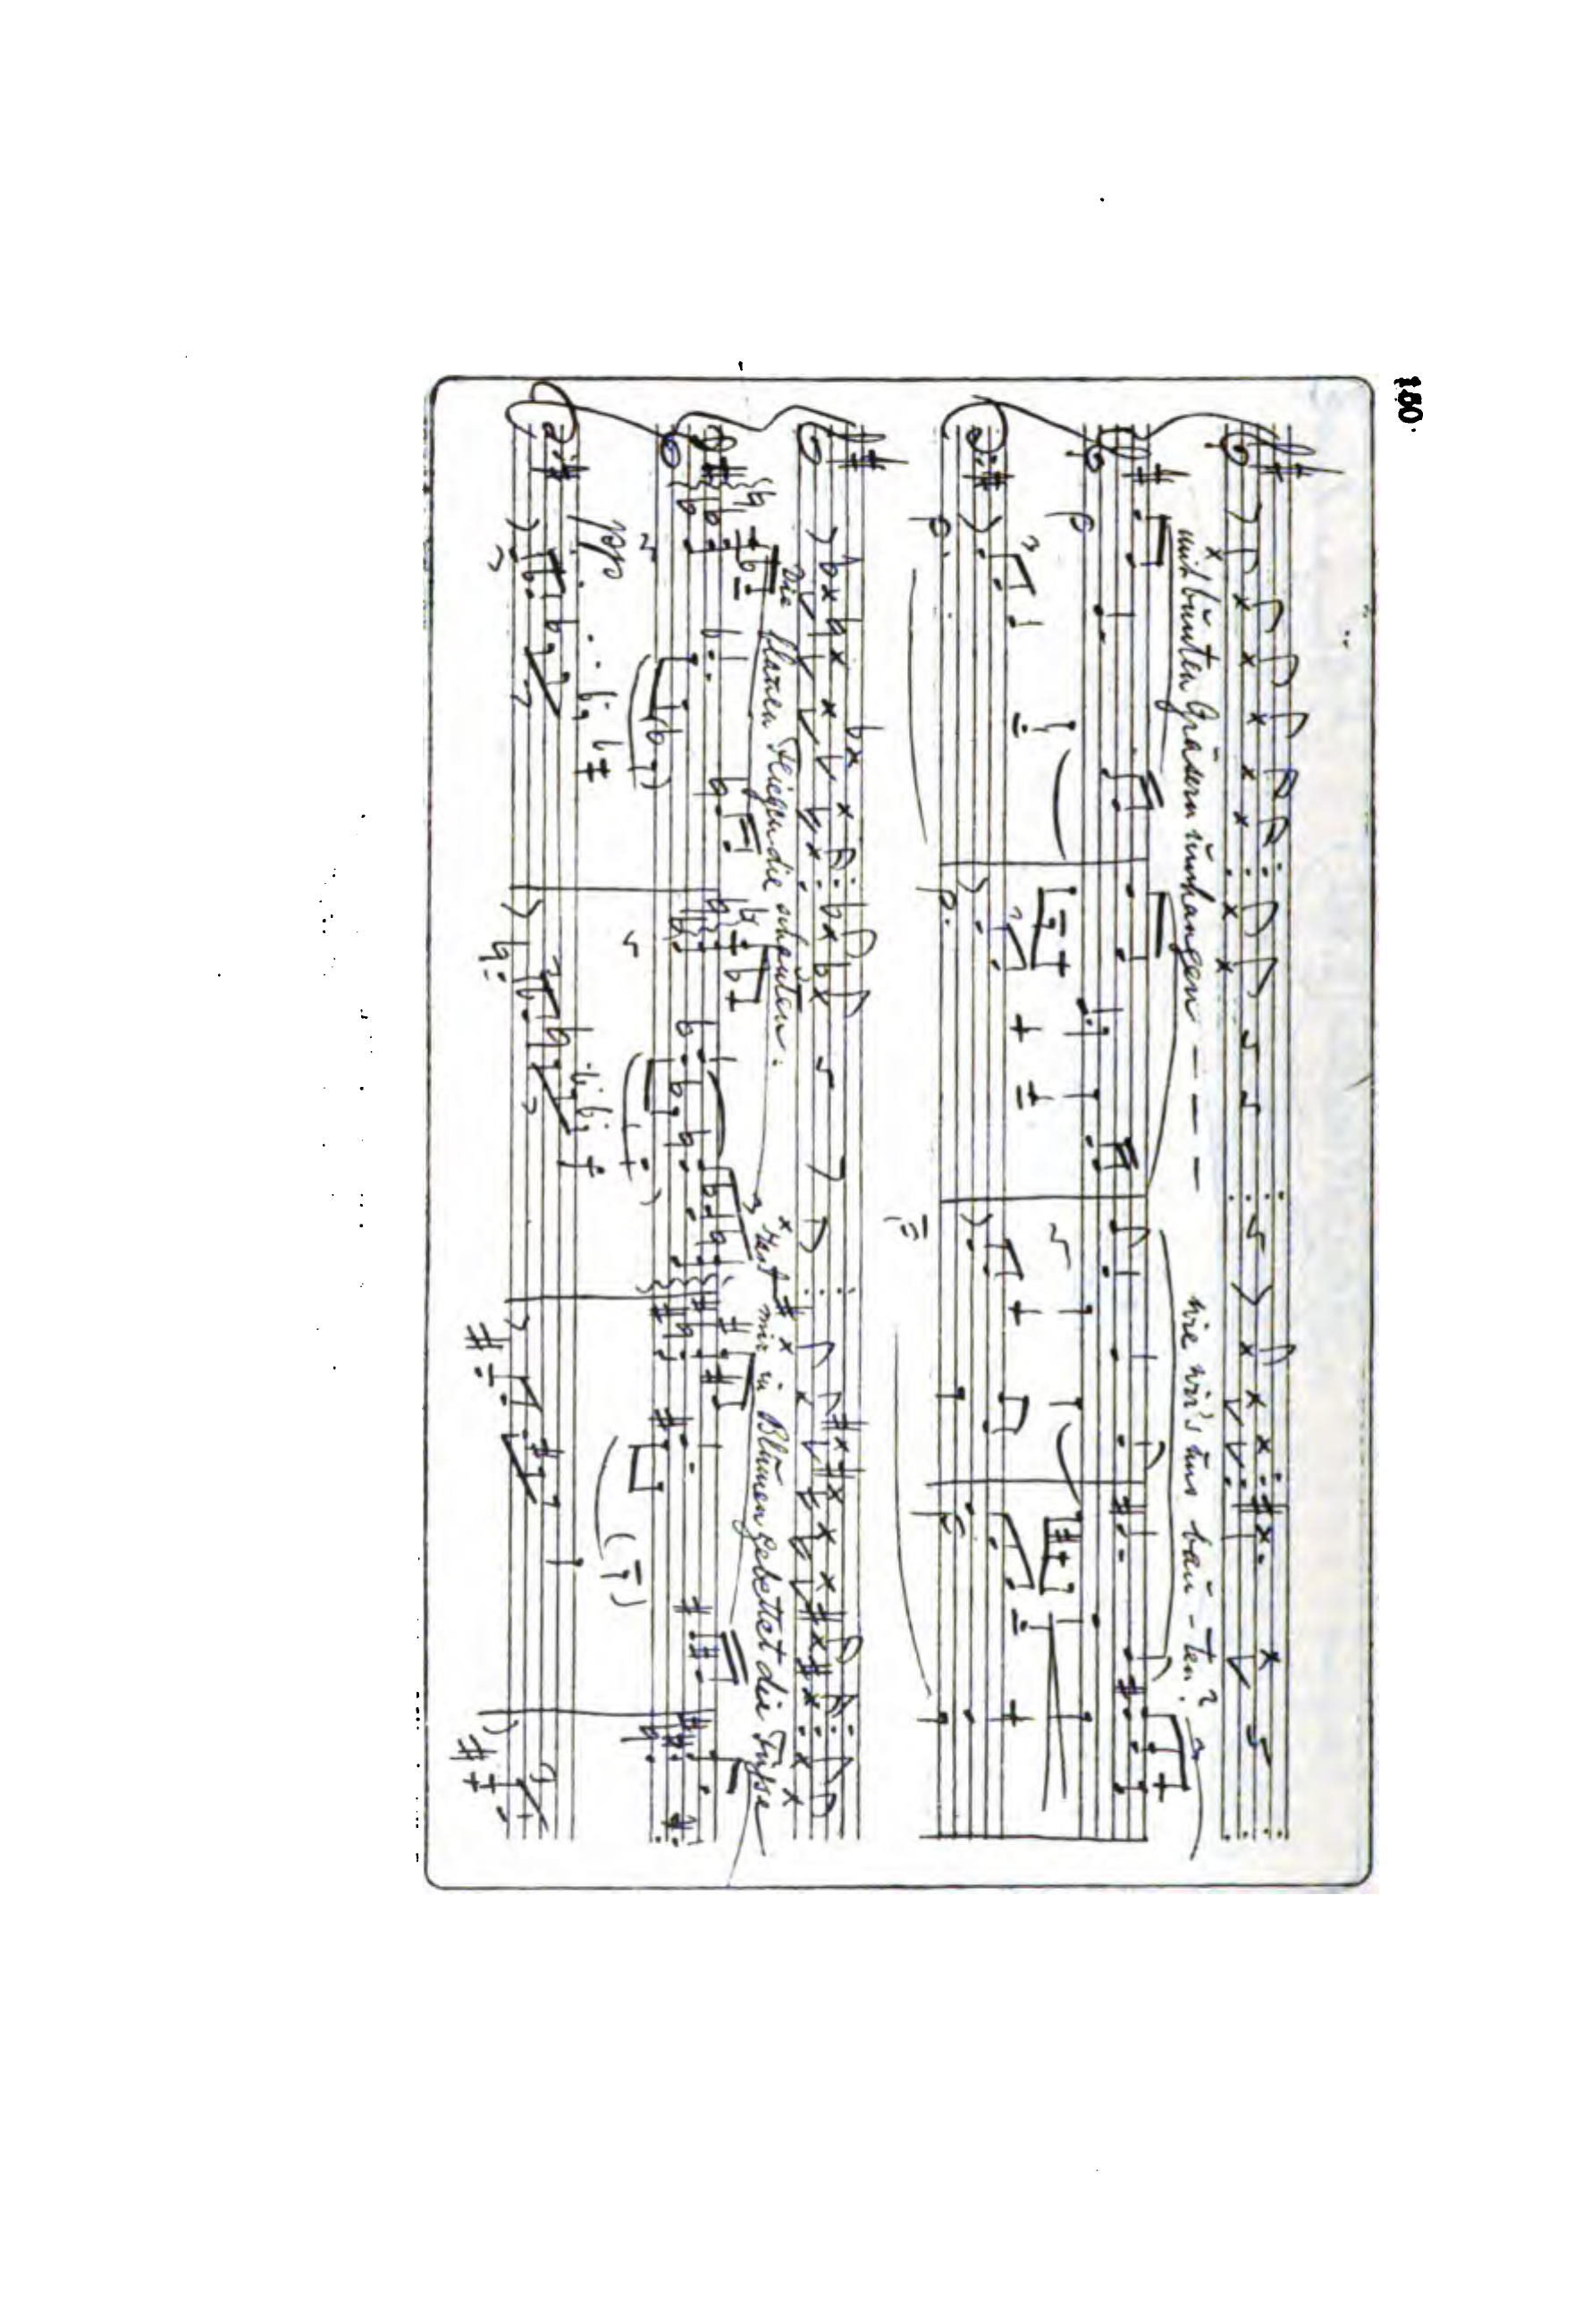 100.
mit bunten Gräsern umhangen — — — wie wir's uns bau - ten?
Die blauen Fliegen die schauten.
mir in Blumen gebettet die Füsse